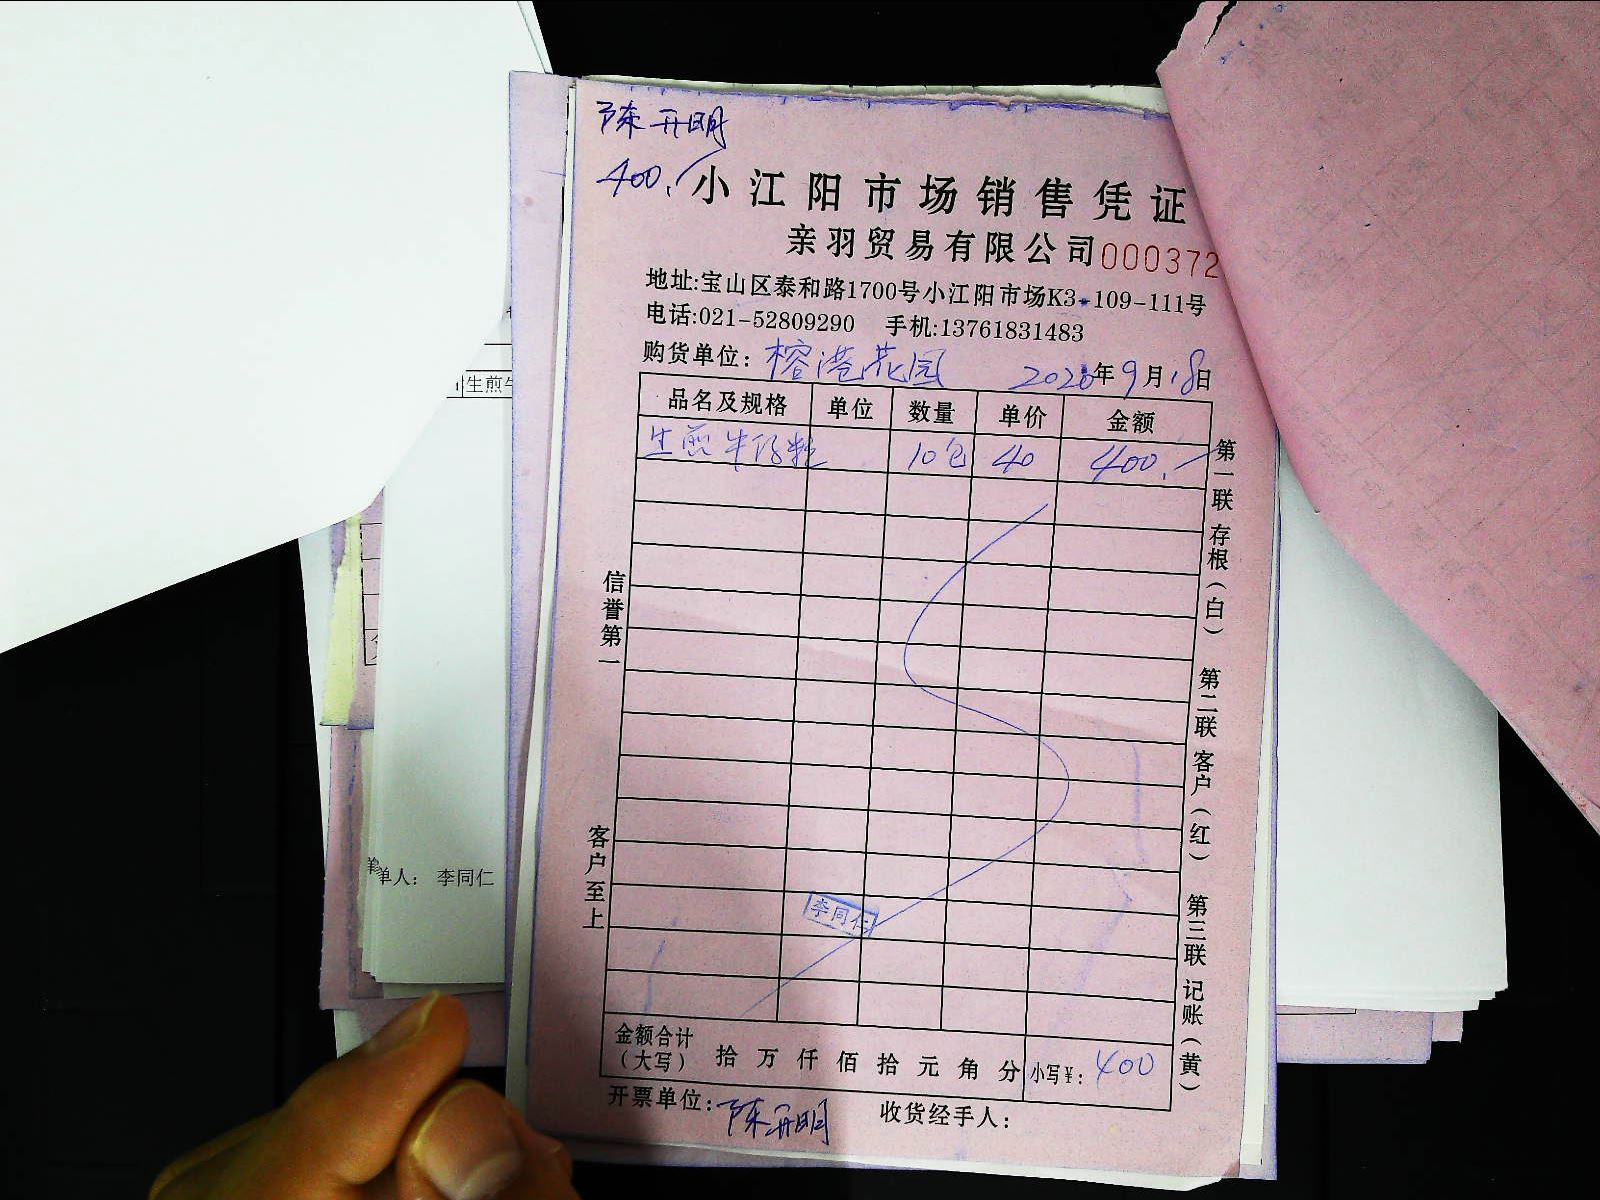 陈开明
400.
小江阳市场销售凭证
亲羽贸易有限公司000372
地址:宝山区泰和路1700号小江阳市场K3-109-111号
电话:021-52809290 手机:13761831483
购货单位: 榕港花园 2020年9月18日
品名及规格 单位 数量 单价 金额
生煎牛仔粒 10包 40 400.
第一联 存根(白) 第二联 客户(红) 第三联 记账(黄)
信誉第一
客户至上
李同仁
金额合计(大写) 拾 万 仟 佰 拾 元 角 分 小写¥: 400
开票单位: 陈开明 收货经手人:
生煎牛
单人: 李同仁